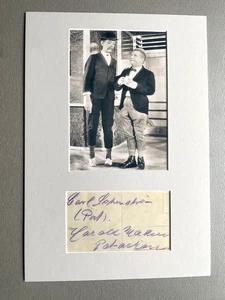 Carl Schenstrøm
(Pat).
Harald Madsen
Patachon